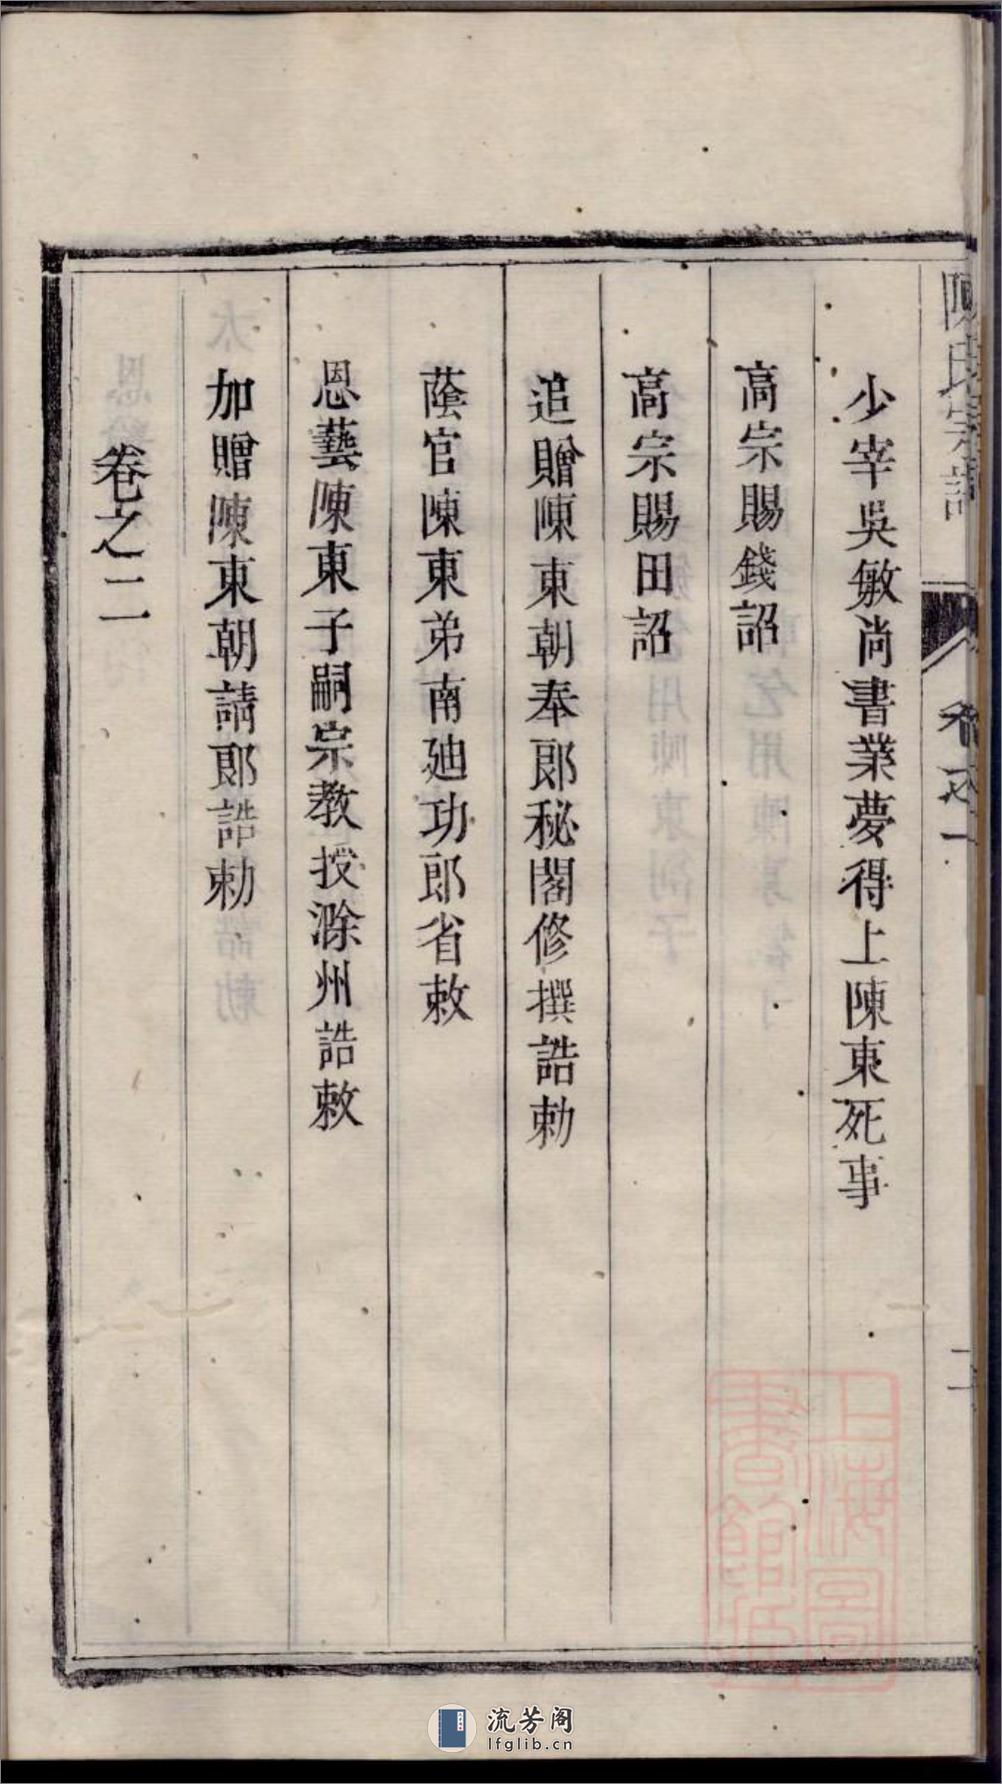 陳氏宗譜
卷之一
二
少宰吳敏尚書業夢得上陳東死事
高宗賜錢詔
高宗賜田詔
追贈陳東朝奉郎秘閣修撰誥勅
蔭官陳東弟南廸功郎省敕
恩藝陳東子嗣宗教授滁州誥敕
加贈陳東朝請郎誥勅
卷之二
上海圖
書館藏
流芳阁
lfglib.cn